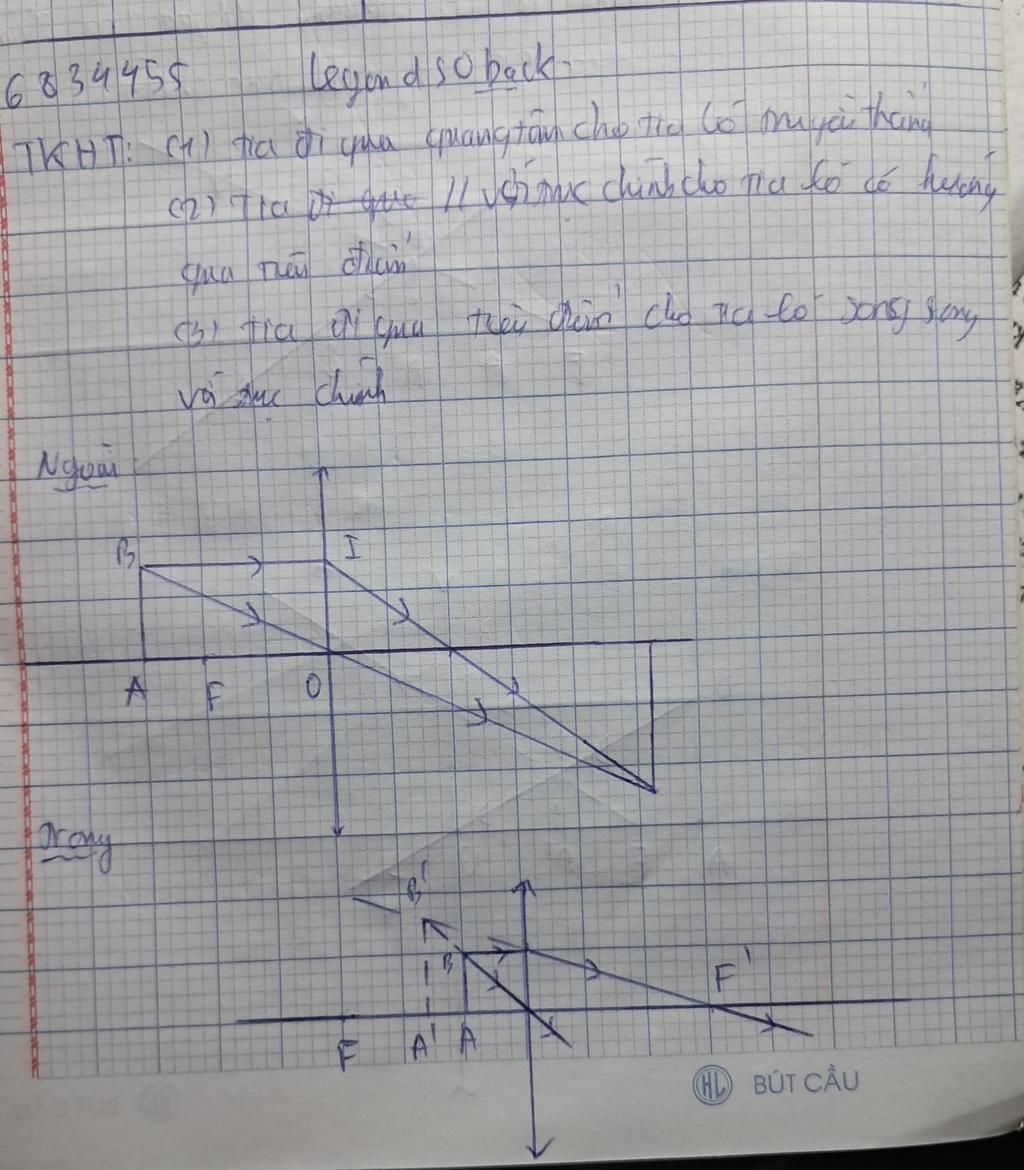 6834455 legend SO back
TKHT: (1) tia đi qua quang tâm cho tia ló truyền thẳng
(2) Tia đi qua // với trục chính cho tia ló có hướng
qua tiêu điểm
(3) tia đi qua tiêu điểm cho tia ló song song
với trục chính
Ngoài
B I
A F O
Trong
B'
B F'
F A' A
HL BÚT CẦU